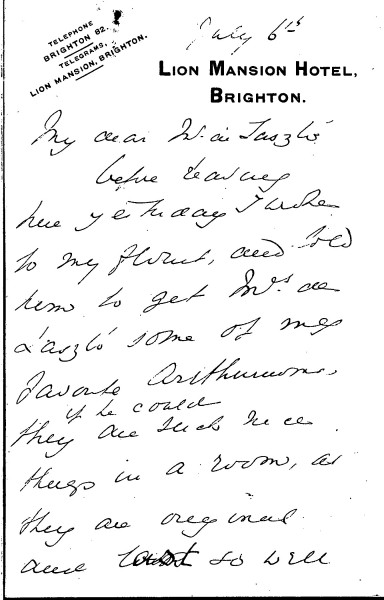 TELEPHONE
BRIGHTON 82.
TELEGRAMS,
LION MANSION, BRIGHTON.
July 6th
LION MANSION HOTEL,
BRIGHTON.
My dear Mr de László
before leaving
here yesterday I wrote
to my florist, and told
him to get Mrs de
László some of my
favorite Anthuriums
if he could
they are such nice
things in a room, as
they are original
and last so well